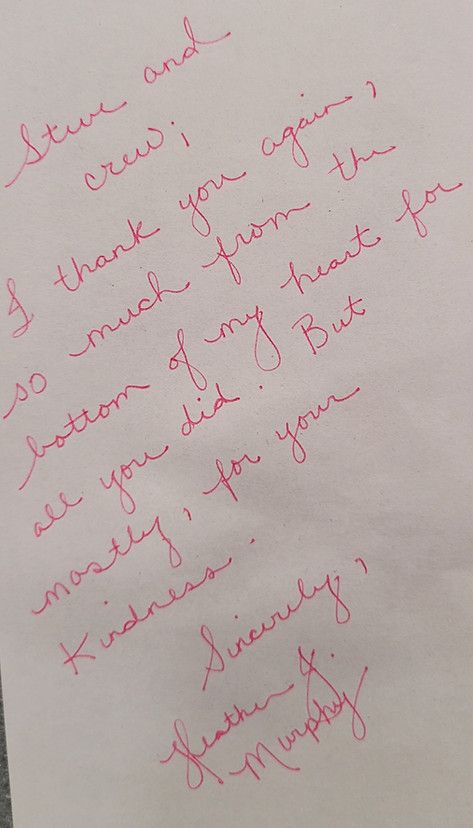 Steve and
crew;
I thank you again,
so much from the
bottom of my heart for
all you did. But
mostly, for your
Kindness.
Sincerely,
Heather J.
Murphy